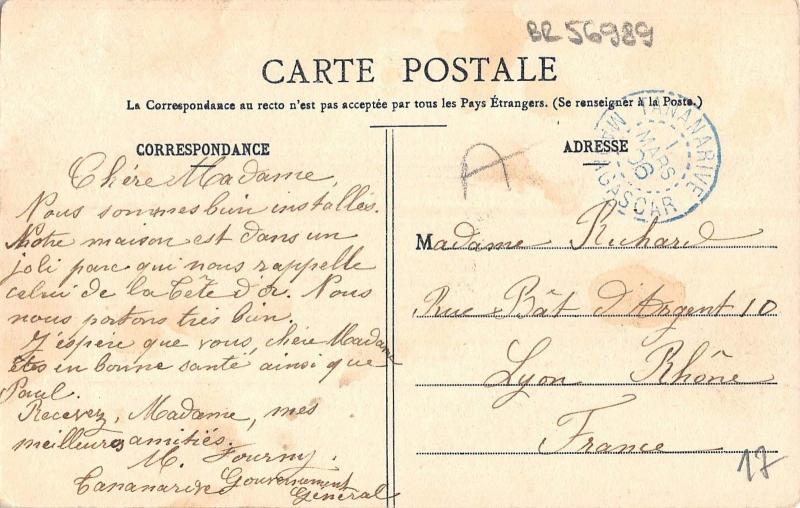 BR 56989
CARTE POSTALE
La Correspondance au recto n'est pas acceptée par tous les Pays Étrangers. (Se renseigner à la Poste.)
CORRESPONDANCE
Chère Madame,
Nous sommes bien installés.
Notre maison est dans un
joli parc qui nous rappelle
celui de la Tête d'Or. Nous
nous portons très bien.
J'espère que vous, chère Madame
êtes en bonne santé ainsi que
Paul.
Recevez, Madame, mes
meilleures amitiés.
M. Fourny.
Tananarive Gouvernement
Général
A
ADRESSE
TANANARIVE
1
MARS
06
MADAGASCAR
Madame Richard
Rue Bât d'Argent 10
Lyon Rhône
France
17